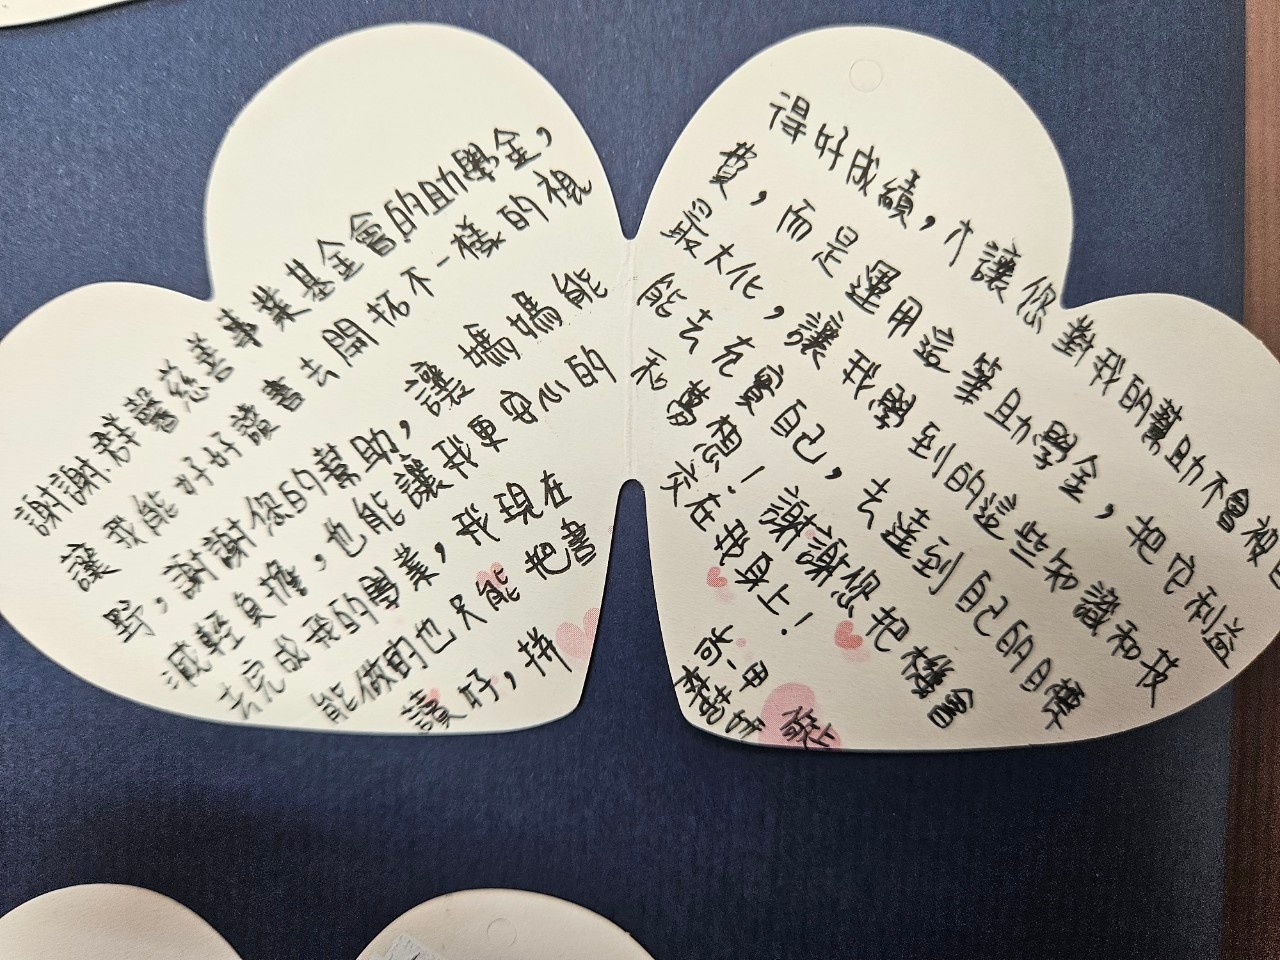 謝謝群馨慈善事業基金會的助學金,
讓我能好好讀書去開拓不一樣的視
野,謝謝您的幫助,讓媽媽能
減輕負擔,也能讓我更安心的
去完成我的學業,我現在
能做的也只能把書
讀好,拼
得好成績,才讓您對我的幫助不會被白
費,而是運用這筆助學金,把它利益
最大化,讓我學到的這些知識和技
能去充實自己,去達到自己的目標
和夢想!謝謝您把機會
交在我身上!
尚一甲
敬上